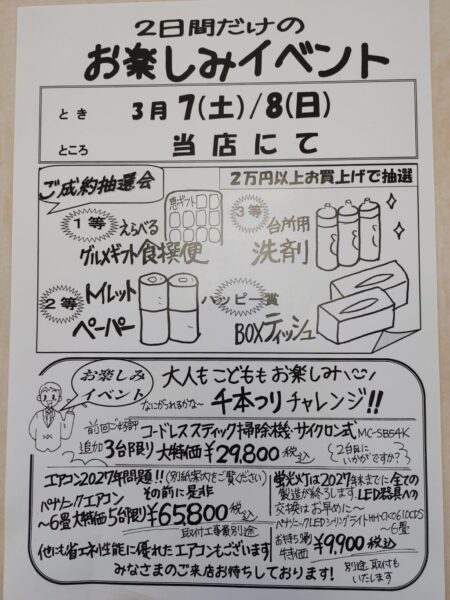 2日間だけの
お楽しみイベント
とき 3月7(土)/8(日)
ところ 当店にて
ご成約抽選会
2万円以上お買上げで抽選
1等 えらべる
グルメギフト食撰便
選べるギフト
3等 台所用
洗剤
2等 トイレット
ペーパー
ハッピー賞
BOXティッシュ
お楽しみ
イベント
大人もこどももお楽しみ
なにがつれるかな～ 千本つりチャレンジ!!
前回ご好評 コードレススティック掃除機・サイクロン式 MC-SB54K
追加3台限り 大特価 ¥29,800税込
2台目に
いかがですか?
エアコン2027年問題!! (別紙案内をご覧ください)
パナソニックエアコン その前に是非
～6畳大特価5台限り ¥65,800税込
取付工事費別途
他にも省エネ性能に優れたエアコンもございます
蛍光灯は2027年末までに全ての
製造が終了します。LED器具への
交換はお早めに～
パナソニックLEDシーリングライト
～6畳
お待ち得
特価 ¥9,900税込
別途取付も
いたします
みなさまのご来店お待ちしております!